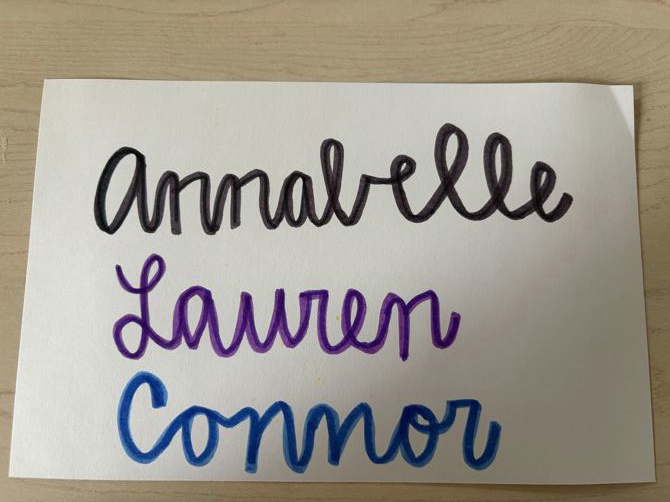 Annabelle
Lauren
Connor